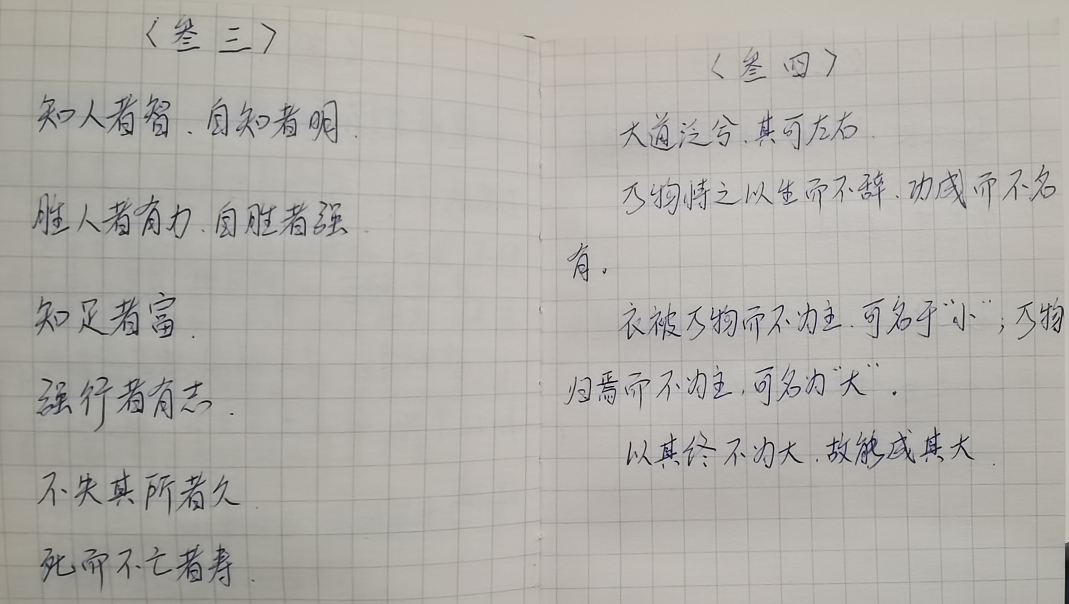 〈叁三〉
知人者智、自知者明.
胜人者有力、自胜者强.
知足者富.
强行者有志.
不失其所者久
死而不亡者寿.
〈叁四〉
大道泛兮、其可左右.
万物恃之以生而不辞、功成而不名
有。
衣被万物而不为主、可名于“小”；万物
归焉而不为主，可名为“大”。
以其终不为大、故能成其大.